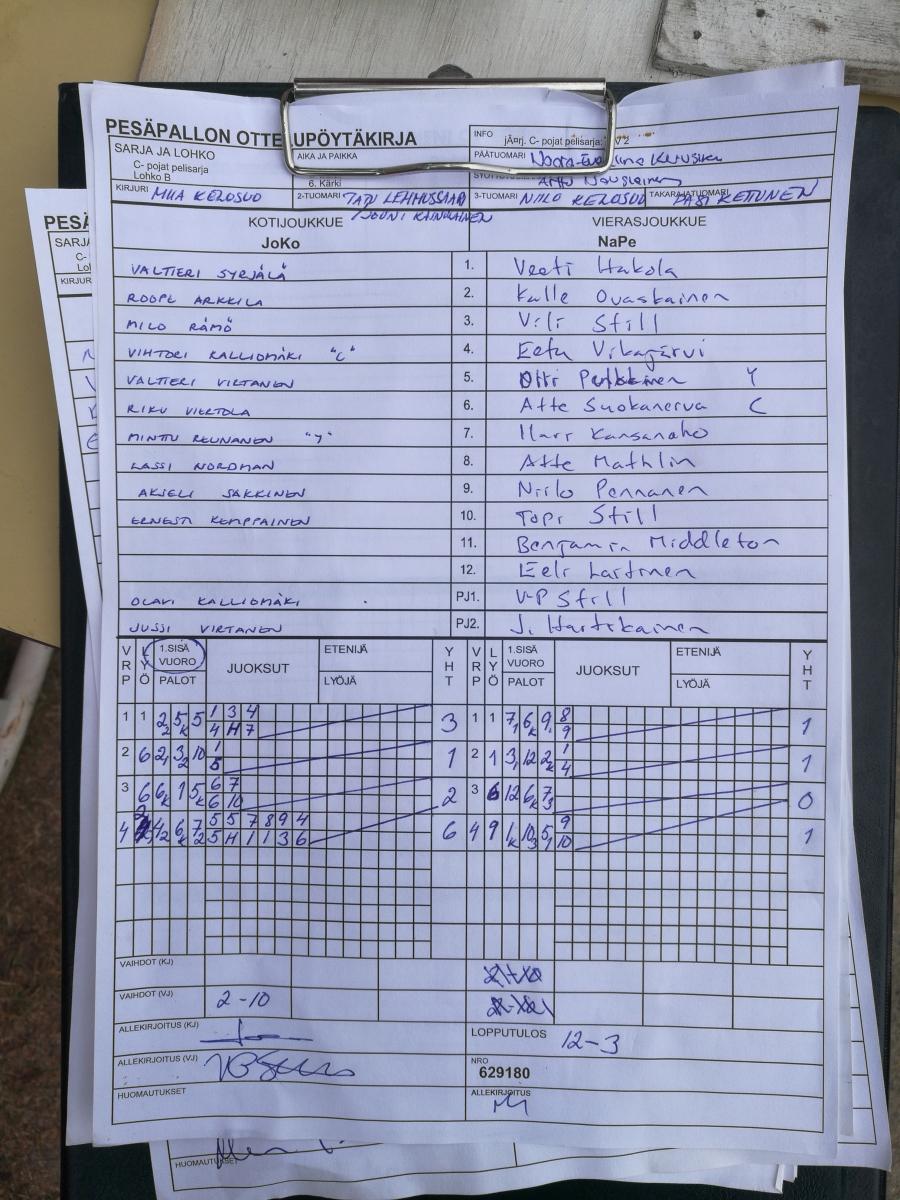 PESÄPALLON OTTE UPÖYTÄKIRJA
SARJA JA LOHKO
C- pojat pelisarja
Lohko B
AIKA JA PAIKKA
6. Kärki
INFO
C- pojat pelisarja:
PÄÄTUOMARI
KIRJURI MIIA KELOSUO
2-TUOMARI TAPI LEHMUSSAARI
/JOUNI KAINULAINEN
3-TUOMARI NIILO KELOSUO
TAKARAJATUOMARI PASI KETTUNEN
KOTIJOUKKUE
JoKo
VIERASJOUKKUE
NaPe
VALTTERI SYRJÄLÄ 1. Veeti Hakola
ROOPE ARKKILA 2. Kalle Ovaskainen
MILO RÄMÖ 3. Vili Still
VIHTORI KALLIOMÄKI "C" 4. Eetu Vikajärvi
VALTTERI VIRTANEN 5. Otti Y
RIKU VIERTOLA 6. Atte Suokanerva C
MINTTU REUNANEN "Y" 7. Kansanaho
LASSI NORDMAN 8. Atte Mathlin
AKSELI SAKKINEN 9. Niilo Pennanen
ERNESTI KEMPPAINEN 10. Topi Still
11. Benjamin Middleton
12. Eeli Lartinen
OLAVI KALLIOMÄKI PJ1. V-P Still
JUSSI VIRTANEN PJ2. J. Hartikainen
VRP LYÖ 1.SISÄ VUORO PALOT JUOKSUT ETENIJÄ LYÖJÄ YHT VRP LYÖ 1.SISÄ VUORO PALOT JUOKSUT ETENIJÄ LYÖJÄ YHT
1 1 2₂ 5ₖ 5 1 3 4 3 1 1 7₁ 6ₖ 9₁ 8 1
4 H 7 9
2 6 2₁ 3₂ 10 1 1 2 1 3₁ 12 2ₖ 1 1
5 4
3 6 6ₖ 1 5ₖ 6 7 2 3 6 12 6ₖ 7₃ 0
6 10
4 4₂ 6ₖ 7₂ 5 5 7 8 9 4 6 4 9 1ₖ 10₃ 5₁ 9 1
5 H 1 1 3 6 10
VAIHDOT (KJ)
VAIHDOT (VJ) 2-10
ALLEKIRJOITUS (KJ)
LOPPUTULOS 12-3
ALLEKIRJOITUS (VJ)
NRO
629180
HUOMAUTUKSET
ALLEKIRJOITUS
PESÄ
SARJA
C-
KIRJUR
HUOMAUTUKSET